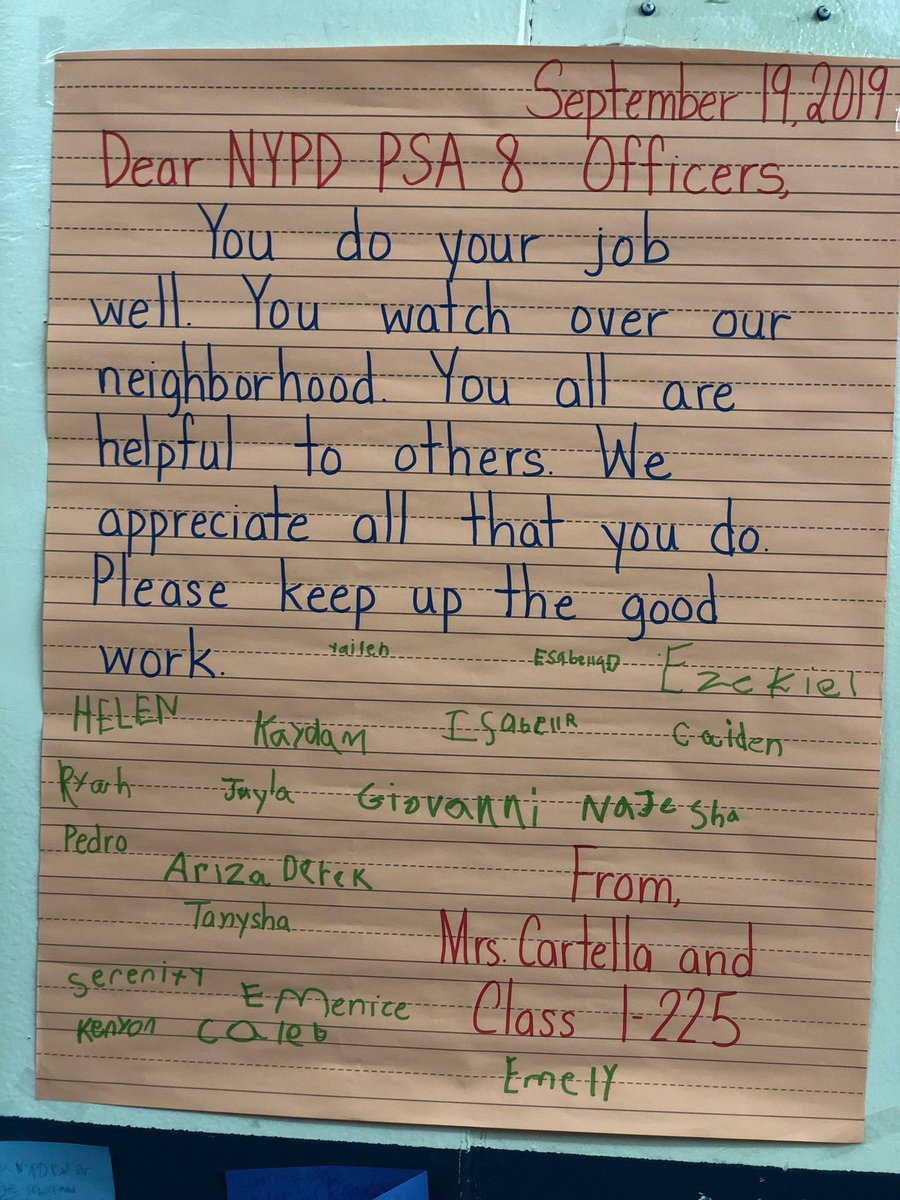 September 19, 2019
Dear NYPD PSA 8 Officers,
You do your job
well. You watch over our
neighborhood. You all are
helpful to others. We
appreciate all that you do.
Please keep up the good
work.
Ezekiel
HELEN Kaydam Caiden
Jayla Giovanni
Pedro
Ariza Derek From,
Tanysha Mrs. Cartella and
Serenity EMenice Class 1-225
Kenyon Caleb
Emely